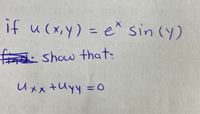 if u(x,y) = eˣ sin(y)
show that:
Uxx + Uyy = 0